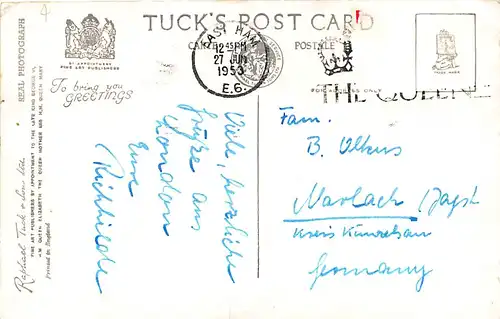 TUCK'S POST CARD
CARTE POSTALE
BY APPOINTMENT
FINE ART PUBLISHERS
REAL PHOTOGRAPH
EAST HAM
12-45 PM
27 JUN
1953
E.6.
THE QUEEN
FOR ADDRESS ONLY
TRADE MARK
To bring you
GREETINGS
Viele, herzliche
Grüße aus
London
Eure
Richhilde
Fam.
B. Ulkus
Marlach /Jagst
Kreis Künzelsau
Germany
Raphael Tuck & Sons Ltd.
FINE ART PUBLISHERS BY APPOINTMENT TO THE LATE KING GEORGE VI,
H.M. QUEEN ELIZABETH THE QUEEN MOTHER AND H.M. QUEEN MARY
Printed in England